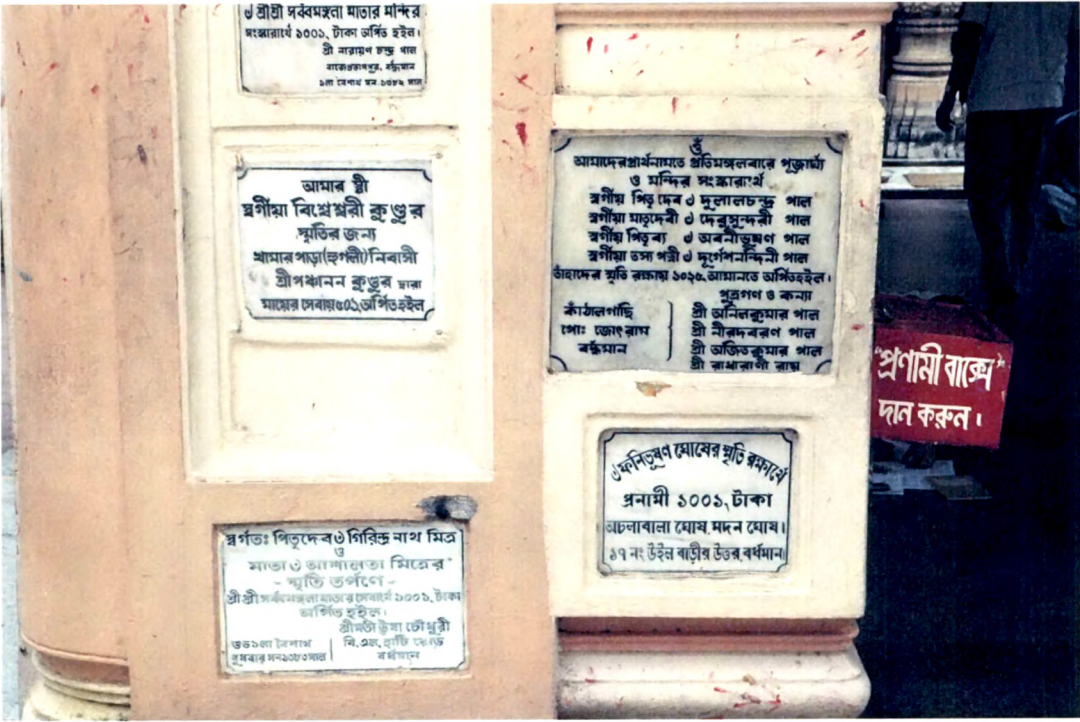 ৺ শ্রীশ্রী সর্ব্বমঙ্গলা মাতার মন্দির
সংস্কারার্থে ১০০১৲ টাকা অর্পিত হইল।
শ্রী নারায়ণ চন্দ্র পাল
বর্দ্ধমান
১লা বৈশাখ সন ১৩৮২ সাল
আমার স্ত্রী
স্বর্গীয়া বিশ্বেশ্বরী কুণ্ডুর
স্মৃতির জন্য
খামার পাড়া (হুগলী) নিবাসী
শ্রীপঞ্চানন কুণ্ডুর দ্বারা
মায়ের সেবায় ৫০১৲ অর্পিত হইল
স্বর্গতঃ পিতৃদেব ৺ গিরিন্দ্র নাথ মিত্র
ও
মাতা ৺ আশালতা মিত্রের
- স্মৃতি তর্পণে -
শ্রী শ্রী সর্বমঙ্গলা মাতার সেবার্থে ১০০১৲ টাকা
অর্পিত হইল।
শ্রীমতী ঊষা চৌধুরী
শুভ ১লা বৈশাখ
বি, এল, হাটি রোড
বুধবার সন ১৩৮৩ সাল
বর্ধমান
ওঁ
আমাদের প্রার্থনামতে প্রতিমঙ্গলবারে পূজার্চ্চা
ও মন্দির সংস্কারার্থে
স্বর্গীয় পিতৃদেব ৺ দুলালচন্দ্র পাল
স্বর্গীয়া মাতৃদেবী ৺ দেবুসুন্দরী পাল
স্বর্গীয় পিতৃব্য ৺ অবনীভূষণ পাল
স্বর্গীয়া তস্য পত্নী ৺ দূর্গেশনন্দিনী পাল
তাঁহাদের স্মৃতি রক্ষায় ১০২৫৲ আমানতে অর্পিত হইল।
পুত্রগণ ও কন্যা
কাঁঠালগাছি
শ্রী অনিলকুমার পাল
পোঃ জোৎরাম
শ্রী নীরদবরণ পাল
বর্দ্ধমান
শ্রী অজিতকুমার পাল
শ্রী রাধারাণী রায়
৺ ফনিভূষণ ঘোষের স্মৃতি রক্ষার্থে
প্রনামী ১০০১৲ টাকা
অচলাবালা ঘোষ, মদন ঘোষ।
১৭ নং উইল বাড়ীর উত্তর, বর্ধমান।
"প্রণামী বাক্সে"
দান করুন।